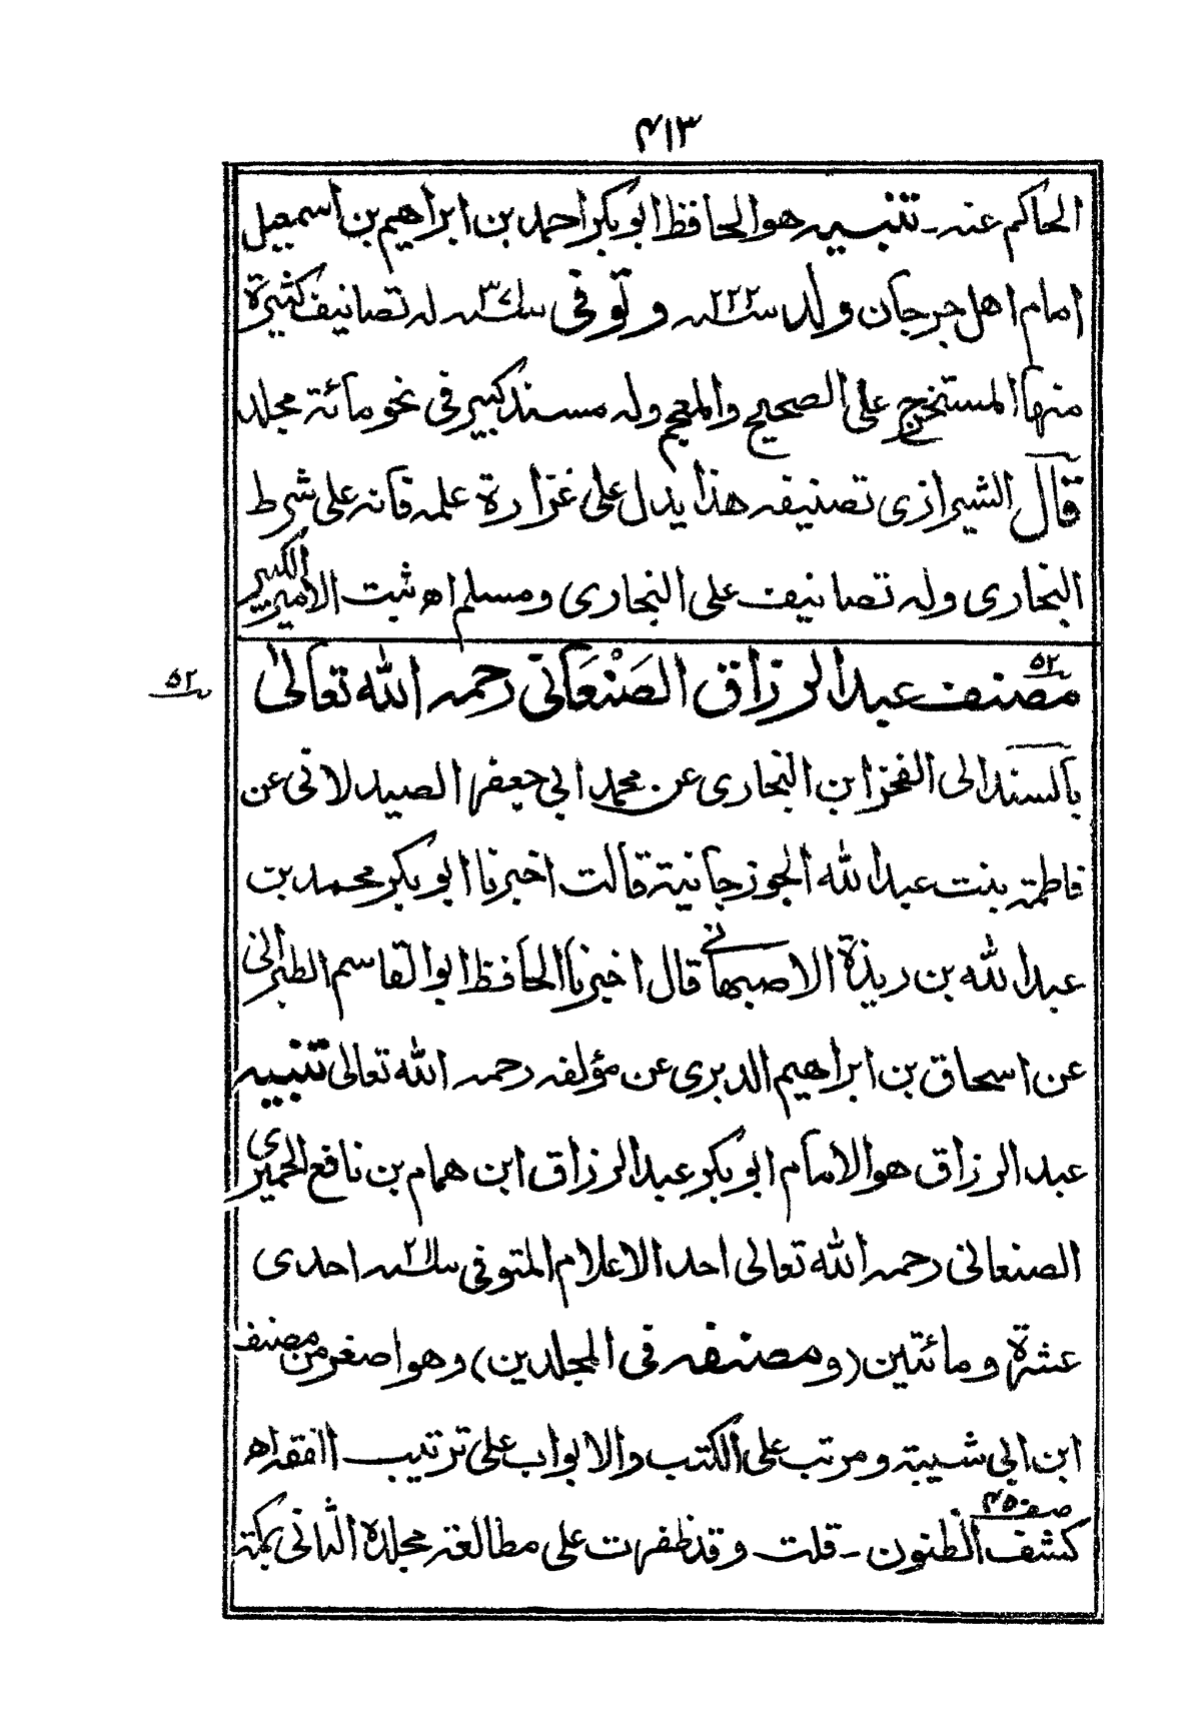 ۴۱۳
الحاكم عنه ـ تنبيه هو الحافظ ابو بكر احمد بن ابراهيم بن اسمعيل
امام اهل جرجان ولد سنه ۲۲۲ و توفى سنه ۳۷۱ له تصانيف كثيرة
منها المستخرج على الصحيح والمعجم وله مسند كبير فى نحو مائة مجلد
قال الشيرازى تصنيفه هذا يدل على غزارة علمه فانه على شرط
البخارى وله تصانيف على البخارى ومسلم اھ ثبت الامير الكبير
۵۲
مصنف عبد الرزاق الصَنْعَانى رحمه الله تعالىٰ
۵۲
بالسند الى الفخر ابن البخارى عن محمد ابى جعفر الصيدلانى عن
فاطمة بنت عبد الله الجوزجانية قالت اخبرنا ابو بكر محمد بن
عبد الله بن ريذة الاصبهانى قال اخبرنا الحافظ ابو القاسم الطبرانى
عن اسحاق بن ابراهيم الدبرى عن مؤلفه رحمه الله تعالى تنبيه
عبد الرزاق هو الامام ابو بكر عبد الرزاق ابن همام بن نافع الحميرى
الصنعانى رحمه الله تعالى احد الاعلام المتوفى سنه ۲۱۱ احدى
عشرة و مائتين (و مصنفه فى المجلدين) وهو اصغر من مصنف
ابن ابى شيبة و مرتب على الكتب والابواب على ترتيب الفقه اھ
كشف الظنون ـ قلت وقد ظفرت على مطالعة مجلده الثانى بمكة